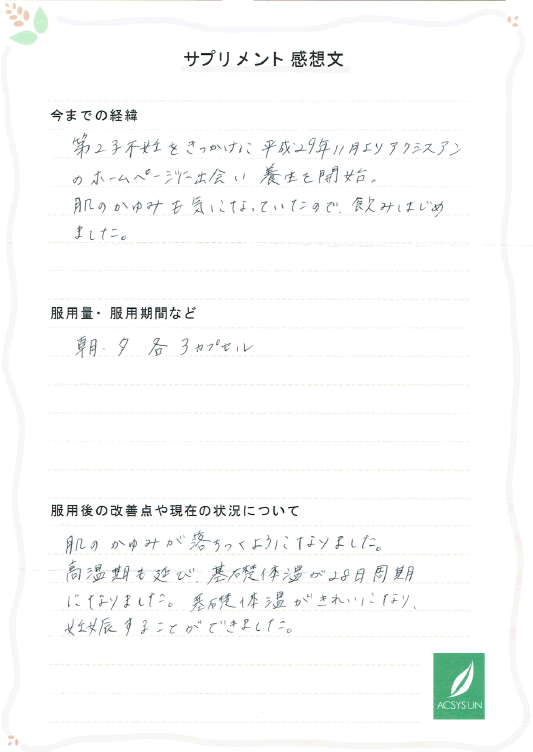 サプリメント 感想文
今までの経緯
第2子不妊をきっかけに 平成29年11月よりアクシスアン
のホームページに出会い 養生を開始。
肌のかゆみも気になっていたので、飲みはじめ
ました。
服用量・服用期間など
朝・夕 各3カプセル
服用後の改善点や現在の状況について
肌のかゆみが落ちつくようになりました。
高温期も延び、基礎体温が28日周期
になりました。基礎体温がきれいになり、
妊娠することができました。
ACSYSUN